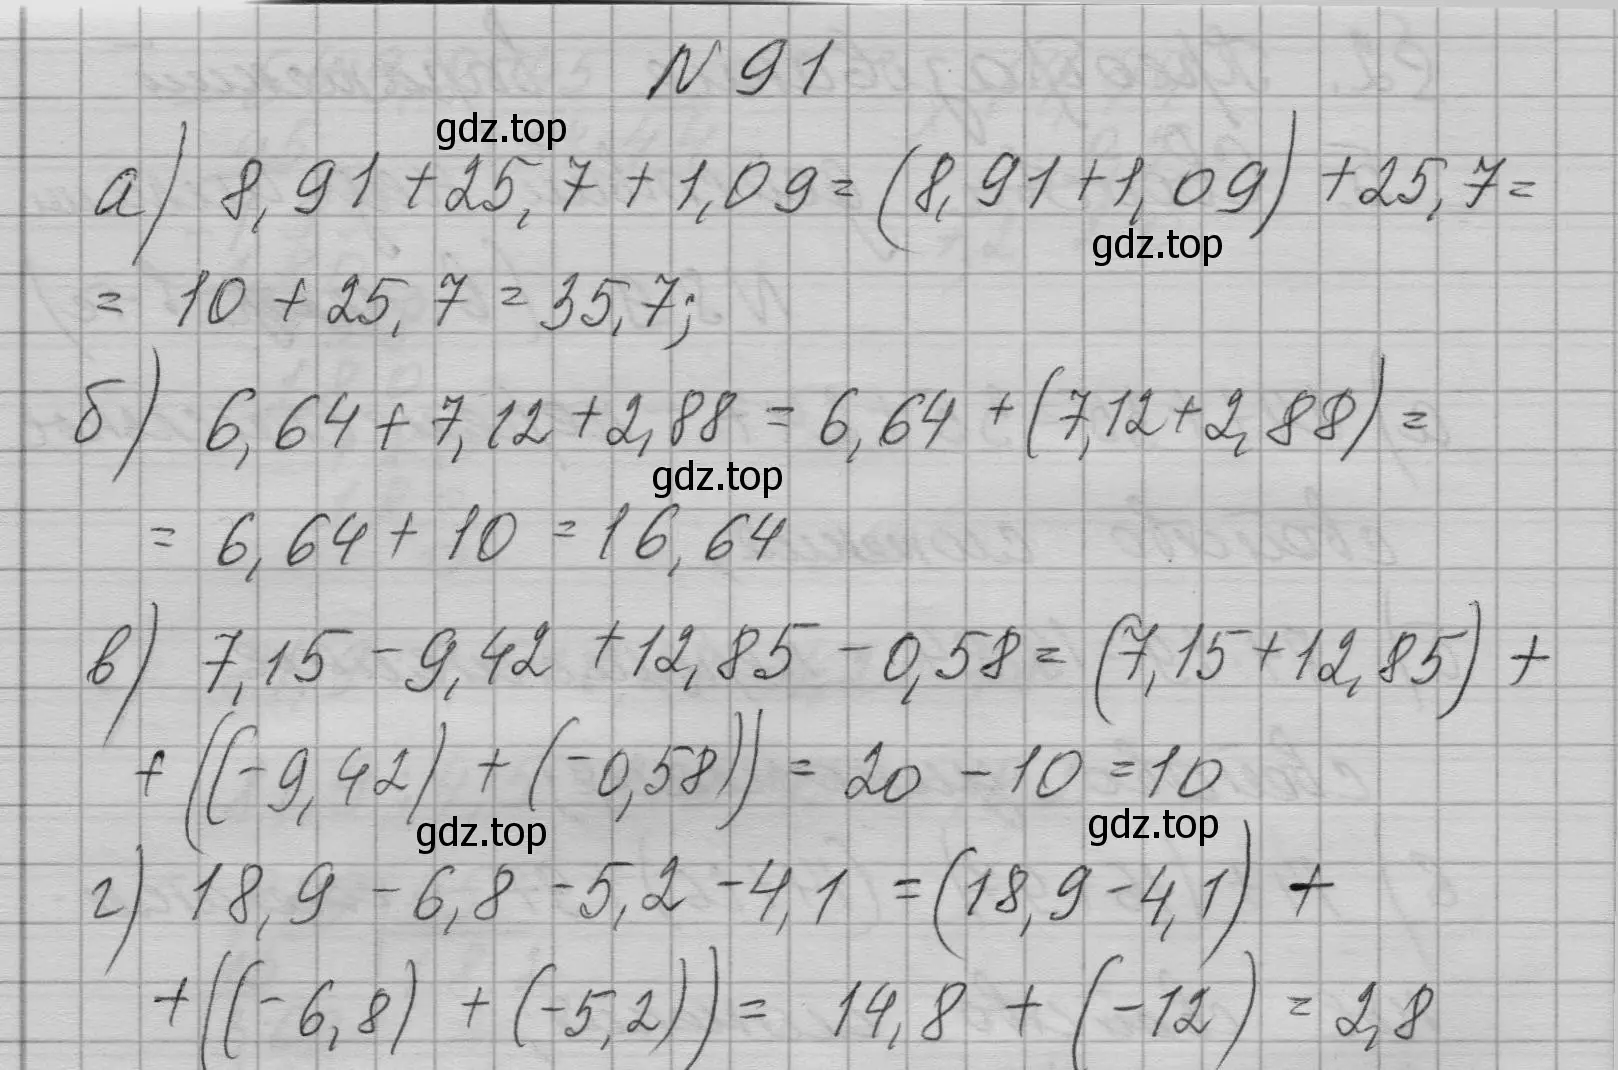 N 91
gdz.top
а) 8,91 + 25,7 + 1,09 = (8,91 + 1,09) + 25,7 =
gdz.top
= 10 + 25,7 = 35,7;
б) 6,64 + 7,12 + 2,88 = 6,64 + (7,12 + 2,88) =
gdz.top
= 6,64 + 10 = 16,64
в) 7,15 - 9,42 + 12,85 - 0,58 = (7,15 + 12,85) +
+ ((-9,42) + (-0,58)) = 20 - 10 = 10
gdz.top gdz.top
г) 18,9 - 6,8 - 5,2 - 4,1 = (18,9 - 4,1) +
+ ((-6,8) + (-5,2)) = 14,8 + (-12) = 2,8